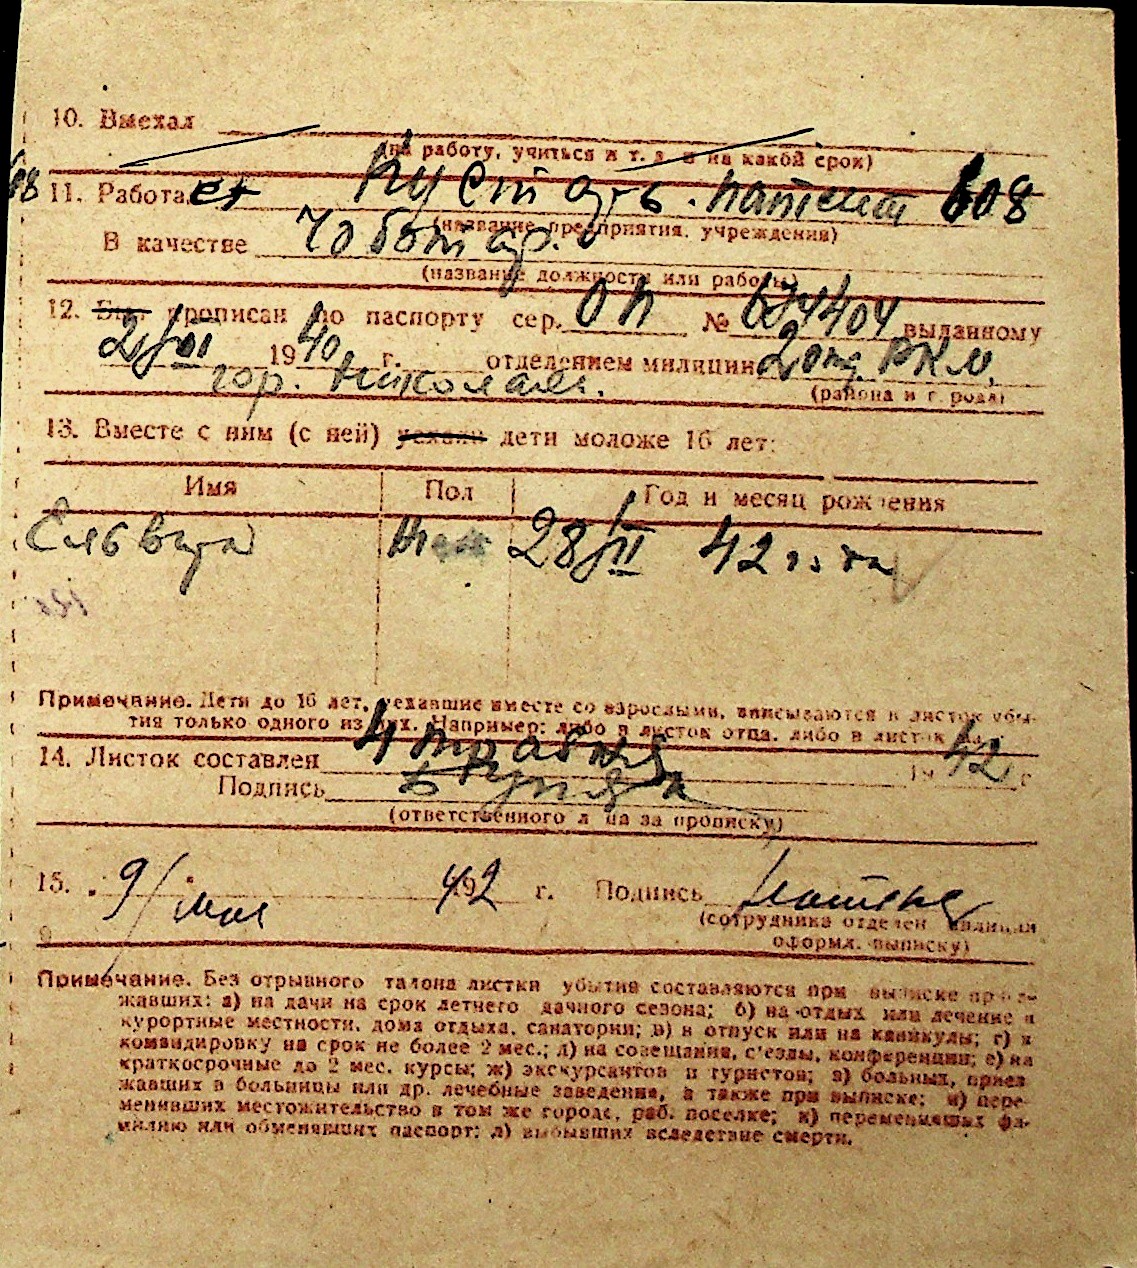 10. Выехал
(на работу, учиться и т. д. и на какой срок)
11. Работает Кустарь. патент 608
(название предприятия, учреждения)
В качестве Чоботар.
(название должности или работы)
12. Был прописан по паспорту сер. ОП № 674404 выданному
2/VI 1940 г. отделением милиции 2 отд. РКМ.
гор. Николаев.
(района и города)
13. Вместе с ним (с ней) уехали дети моложе 16 лет:
Имя Пол Год и месяц рождения
28/II 42 года
Примечание. Дети до 16 лет, уехавшие вместе со взрослыми, вписываются в листок убы-
тия только одного из них. Например: либо в листок отца, либо в листок
14. Листок составлен 4 травня 1942 г
Подпись
(ответственного лица за прописку)
15. 9/мая 1942 г. Подпись
(сотрудника отделен милиции
оформл. выписку)
Примечание. Без отрывного талона листки убытия составляются при выписке приез-
жавших: а) на дачи на срок летнего дачного сезона; б) на отдых или лечение в
курортные местности, дома отдыха, санатории; в) в отпуск или на каникулы; г) в
командировку на срок не более 2 мес.; д) на совещания, с'езды, конференции; е) на
краткосрочные до 2 мес. курсы; ж) экскурсантов и туристов; з) больных, приез
жавших в больницы или др. лечебные заведения, а также при выписке; и) пере-
менивших местожительство в том же городе, раб. поселке; к) переменивших фа-
милию или обменявших паспорт; л) выбывших вследствие смерти.